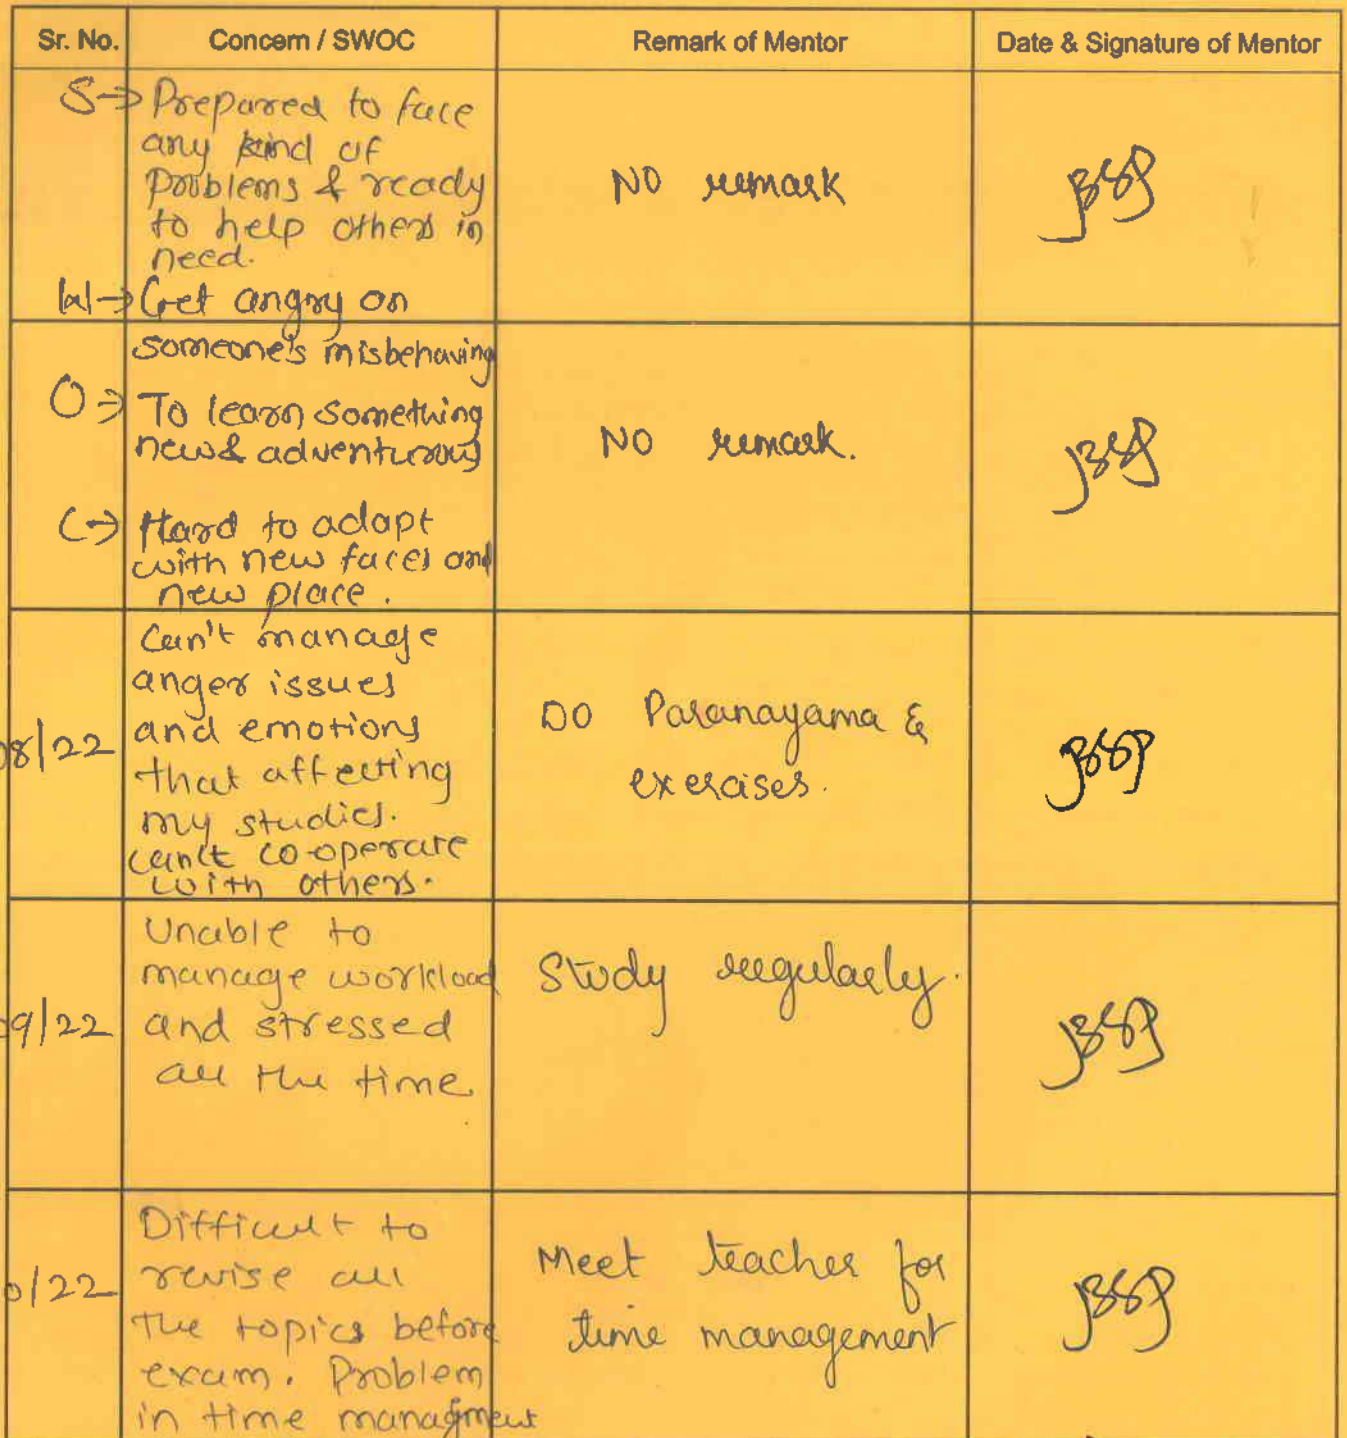 Sr. No. Concern / SWOC Remark of Mentor Date & Signature of Mentor
S→ Prepared to face
any kind of
problems & ready
to help others in
need.
NO remark
W→ Get angry on
someone's misbehaving
O→ To learn something
new & adventurous
NO remark.
C→ Hard to adapt
with new faces and
new place.
08/22
Can't manage
anger issues
and emotions
that affecting
my studies.
can't co-operate
with others.
DO Paranayama &
exercises.
09/22
Unable to
manage workload
and stressed
all the time
Study regularly.
0/22
Difficult to
revise all
the topics before
exam. Problem
in time managment
Meet teacher for
time management